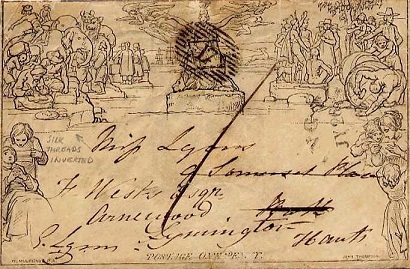 SILK
THREADS
INVERTED
Miss Lyons
Somerset Place
F Weeks Esqr
Arnewood
Lymington
Hants
POSTAGE ONE PENNY
W. MULREADY, R.A.
JOHN THOMPSON